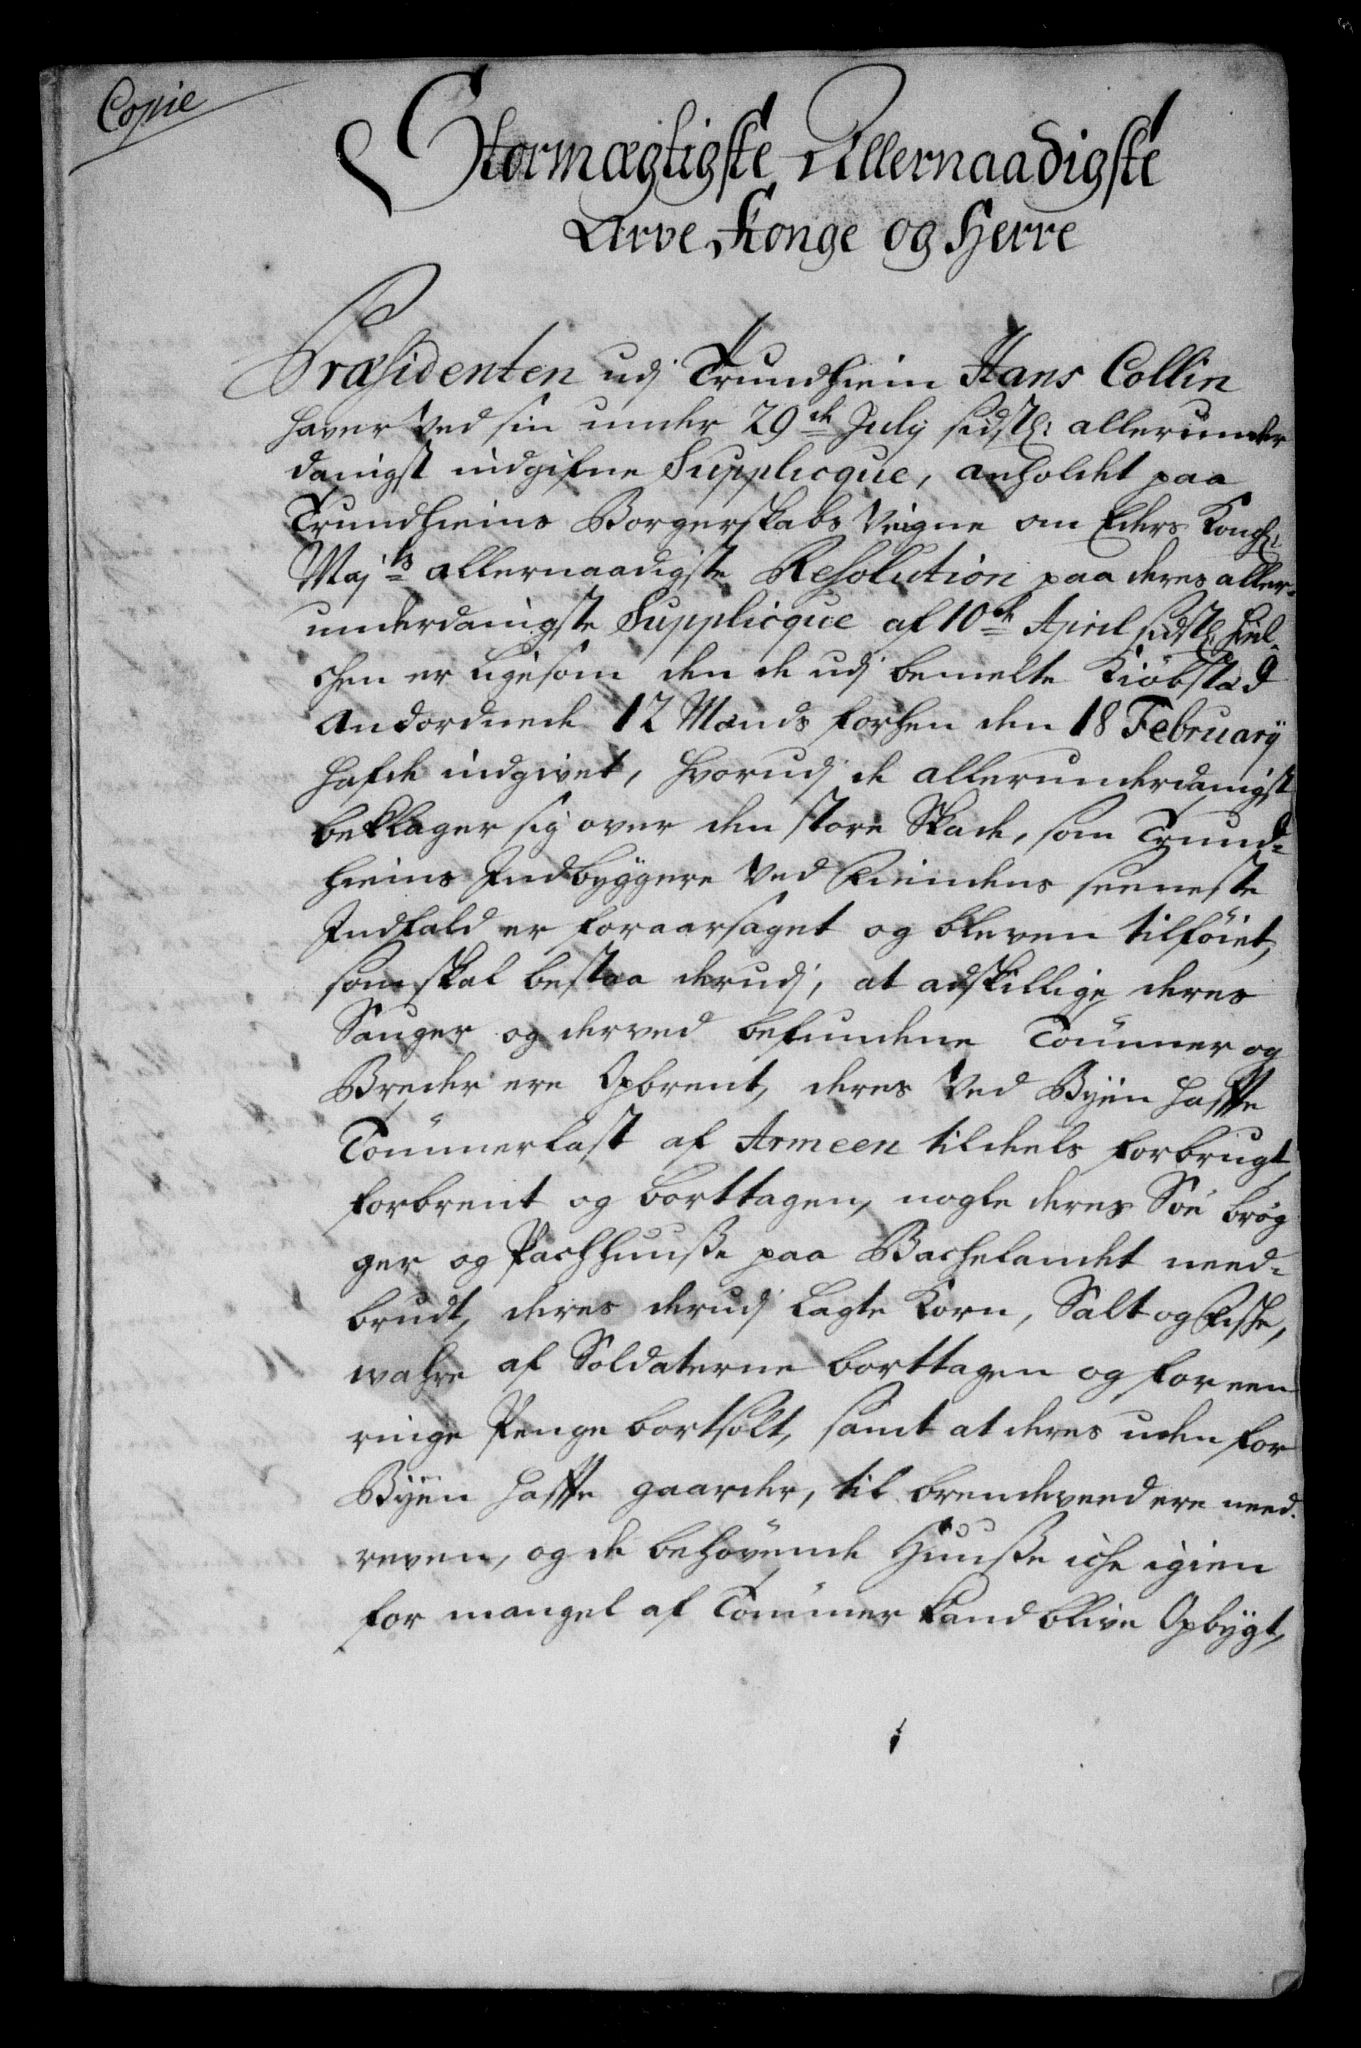 Copie
Stormægtigste Allernaadigste
Arve Konge og Herre
Præsidenten udj Trundhiem Hans Collin
haver ved sin under 29de July sidstl: allerunder
danigst indgifne Supplicque, anholdet paa
Trundhiems Borgerskabs Veigne om Eders Kongl:
Majts allernaadigste Resolution paa deres aller-
underdanigste Supplicque af 10de April sidstl: hvil-
chen er ligesom den de udj bemelte Kiöbstæd
Anordnede 12 Mænds forhen den 18 February
hafde indgivet, hvorudj de allerunderdanigst
beklager sig over den store Skade, som Trund-
hiems Indbyggere ved Fiendens seeneste
Indfald er foraarsaget og bleven tilföiet,
som skal bestaa derudj, at adskillige deres
Sauger og derved befundene Tömmer og
Breder ere Opbrent, deres ved Byen hafte
Tömmerlast af Armeen tildeels forbrugt,
forbrent og borttagen, nogle deres Söe brög
ger og Pachhuuße paa Bachelandet need-
brudt, deres derudj lagte Korn, Salt og Fiske,
wahre af Soldaterne borttagen og for een
ringe Penge bortsolt, samt at deres uden for
Byen hafte gaarder, til brendeveed ere need-
reven, og de behövende Huuße iche igien
for mangel af Tömmer kand blive Opbygt,